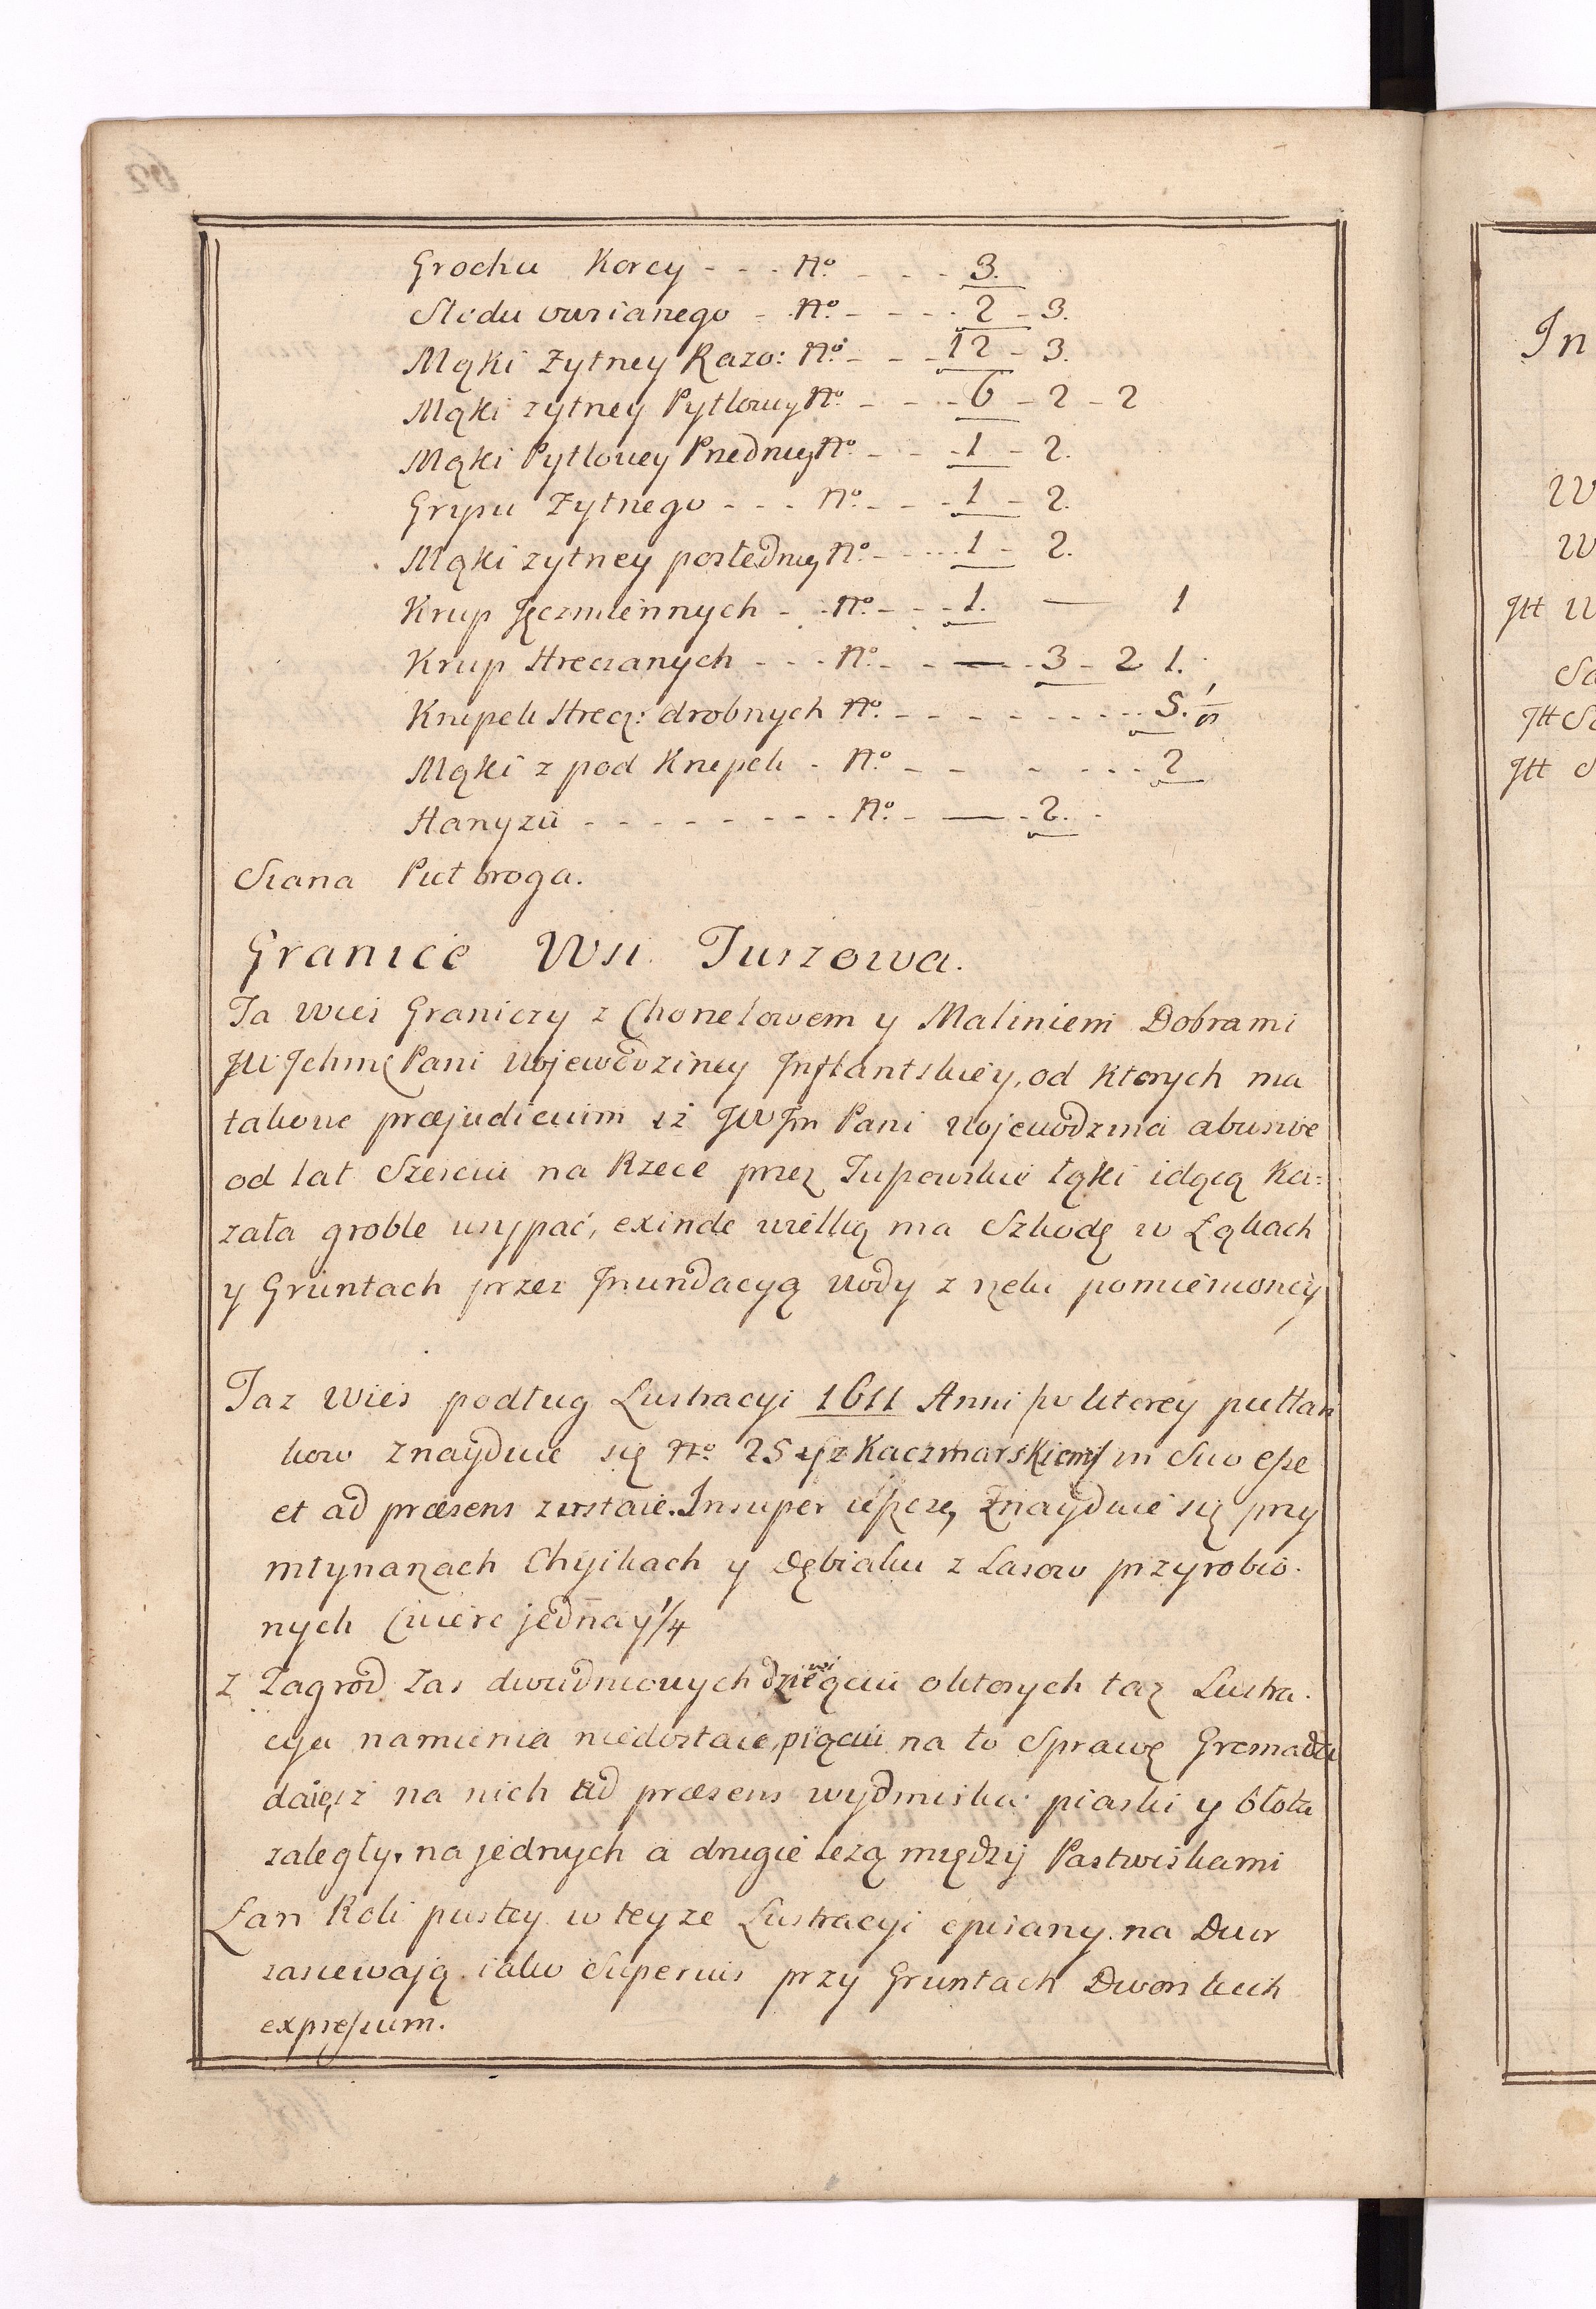 Grochu Korcy - - - No. - - - 3.
Słodu owsianego - No. - - - 2 - 3.
Mąki Żytney Razo: No. - - - 12 - 3.
Mąki żytney Pytlowey No. - - - 6 - 2 - 2
Mąki Pytlowey Przedniey No. - - - 1 - 2.
Grysu Żytnego - - - No. - - - 1 - 2.
Mąki żytney pośledniey No. - - - 1 - 2.
Krup Jęczmiennych - No. - - - 1. — 1
Krup Hreczanych - - - No. - - — - 3 - 2 1.
Krupek Hrecz: drobnych No. - - - - - - 5.
Mąki z pod Krupek - No. - - - - - 2
Hanyzu - - - - - - - - - No. - — - 2. -
Siana Puł broga.
Granice Wsi Tuszowa.
Ta wieś Graniczy z Chorzelowem y Maliniem Dobrami
JW Jchmę Pani Wojewodziney Jnflantskiey, od ktorych ma
takowe præjudicium iż JWJm Pani Wojewodzina abusive
od lat Sześciu na Rzece przez Tuszowskie łąki idącą Ka=
zała groble usypać, exinde wielką ma Szkodę w Łąkach
y Gruntach przez Jnundacyą Wody z rzeki pomienioney
Taz Wieś podług Lustracyi 1611 Anni /w ktorey pułłan
kow znayduie się No. 25 y z Kaczmarskiem/ in Suo eße
et ad præsens zostaie. Insuper ießcze, znayduie się przy
młynarzach Chyikach y Dębiaku z Lasow przyrobio-
nych Cwierc jedna y 1/4
Z Zagrod zas dwudniowych dziewiąciu o ktorych taz Lustra-
cya namienia niedostaie, piąciu na to Sprawę Gromadu
daie, iż na nich ad præsens wydmiska piaski y błota
zaległy. na jednych a drugie leżą między Pastwiskami
Łan Roli pustey w teyze Lustracyi opisany. na Dwor
zasiewają iako Superius przy Gruntach Dworskich
expreßum.
In
W
W
Jtt W
Jtt
Jtt